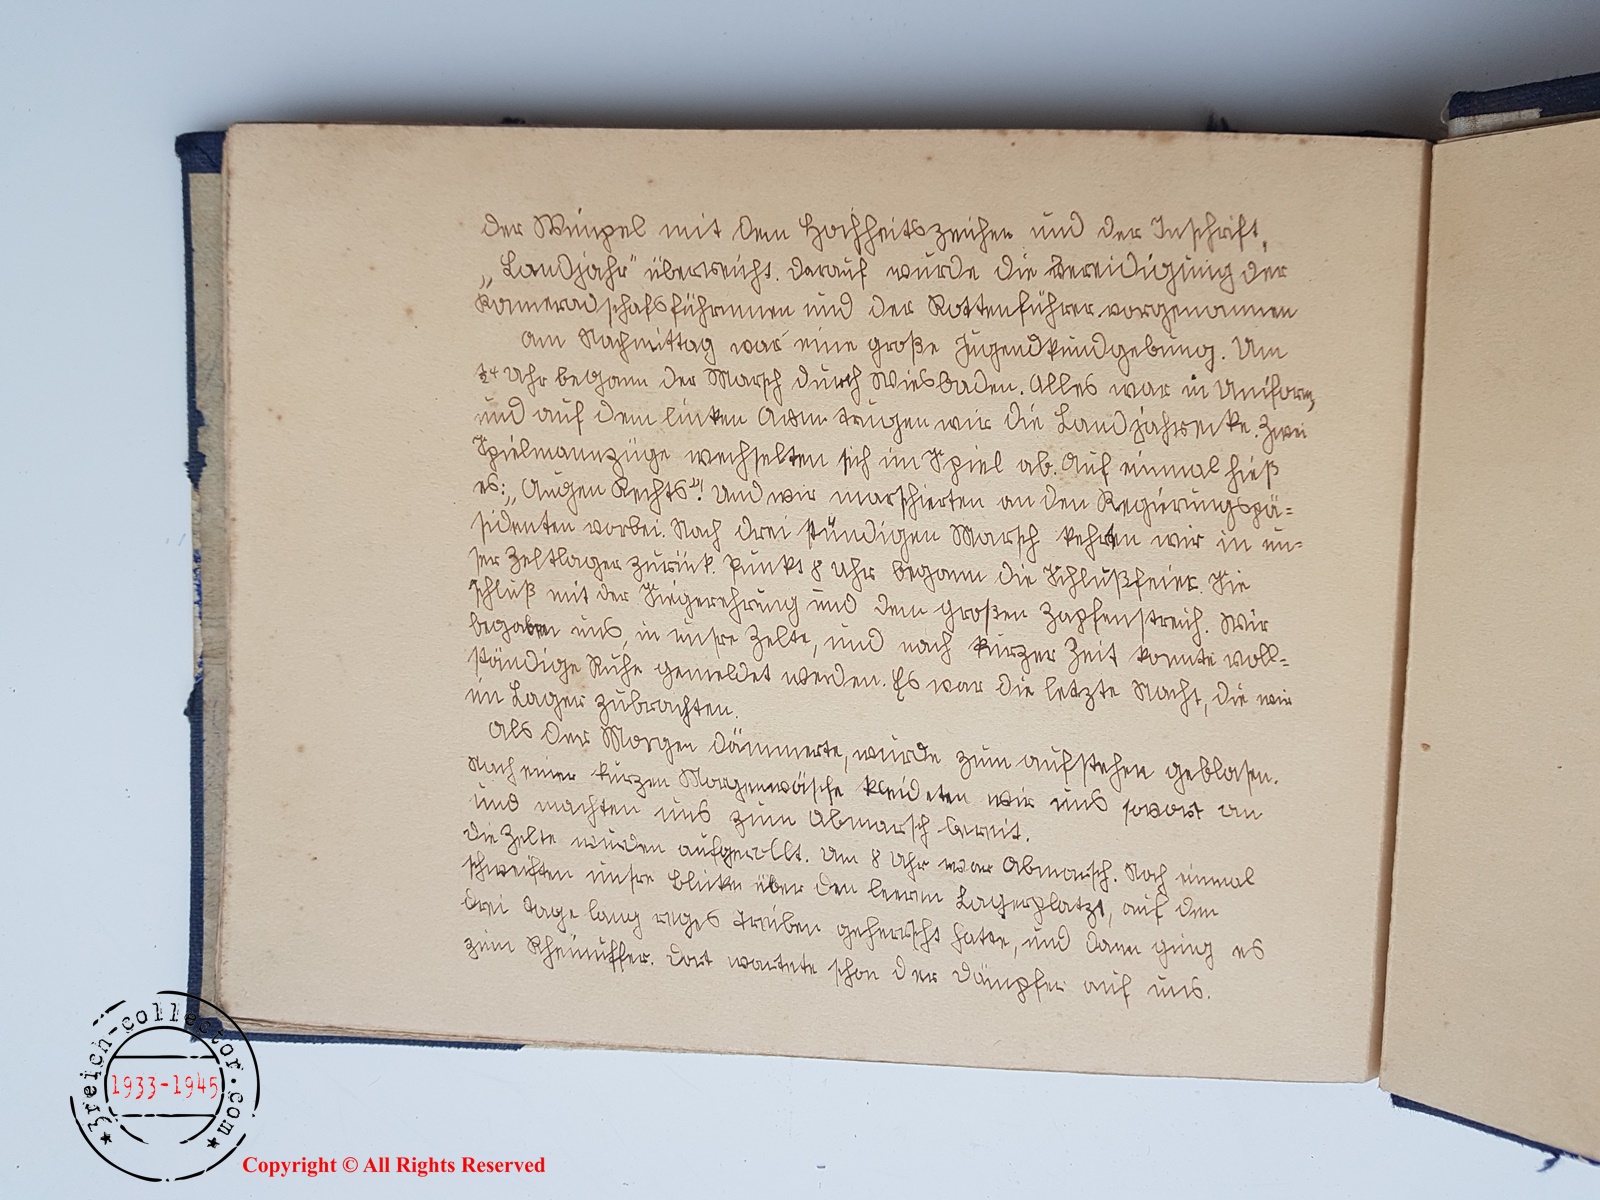 der Wimpel mit dem Hochheitszeichen und der Inschrift,
„Landjahr" überreicht. Darauf wurde die Vereidigung der
Kameradschafsführinnen und der Rottenführer vorgenommen
Am Nachmittag war eine große Jugendkundgebung. Um
½4 Uhr begann der Marsch durch Wiesbaden. Alles war in Uniform,
und auf dem linken Arm trugen wir die Landjahrsecke. Zwei
Spielmannzüge wechselten sich im Spiel ab. Auf einmal hieß
es: „Augen Rechts"! Und wir marschierten an den Regierungspä=
sidenten vorbei. Nach drei stündigen Marsch kehrten wir in un=
ser Zeltlager zurück. Punkt 8 Uhr begann die Schlußfeier. Sie
schluß mit der Siegerehrung und dem großen Zapfenstreich. Wir
begaben uns, in unsre Zelte, und nach kurzer Zeit konnte voll=
ständige Ruhe gemeldet werden. Es war die letzte Nacht, die wir
im Lager zubrachten.
Als der Morgen dämmerte, wurde zum aufstehen geblasen.
Nach einer kurzen Morgenwäsche kleideten wir uns sovort an
und machten uns zum Abmarsch bereit.
Die Zelte wurden aufgerollt. Um 8 Uhr war Abmarsch. Noch einmal
schweiften unsre Blicke über den leeren Lagerplatzt, auf den
drei Tage lang reges Treiben geherrscht hatte, und dann ging es
zum Rheinuffer. Dort wartete schon der Dämpfer auf uns.
3reich-collector.com
1933-1945
Copyright © All Rights Reserved